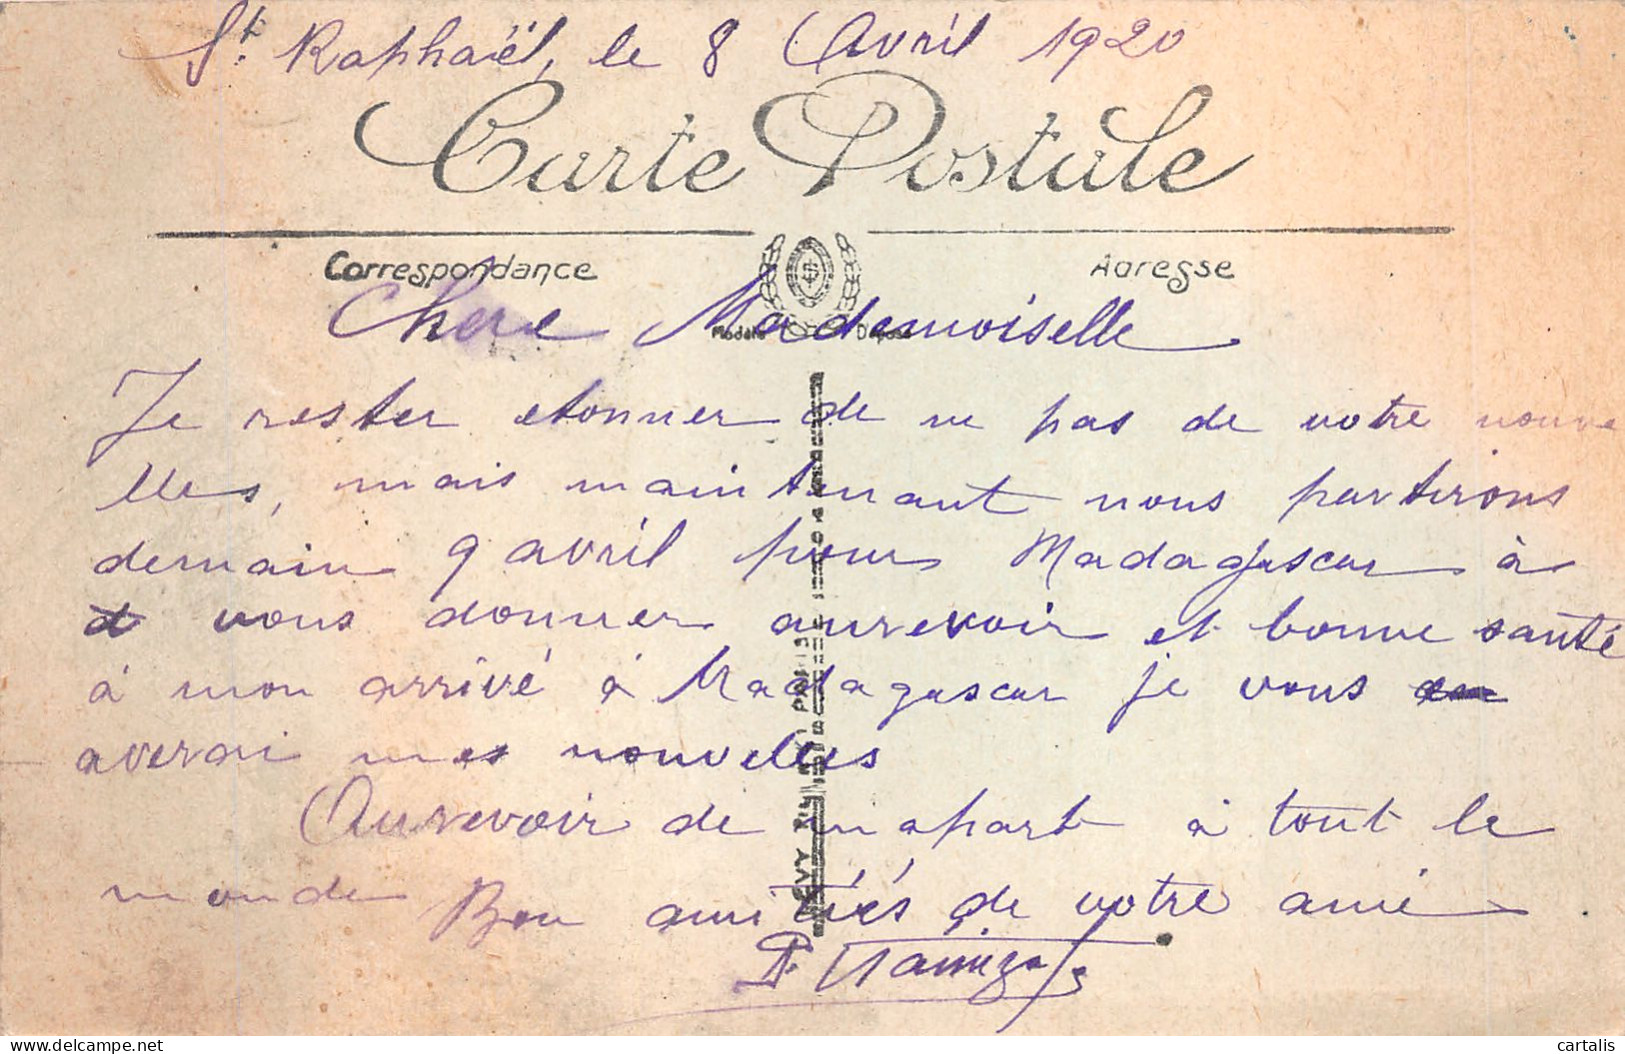 St. Raphaël, le 8 Avril 1920
Carte Postale
Correspondance
Adresse
Chere Mademoiselle
Modèle Déposé
Je rester etonner de ne pas de votre nouve
lles, mais maintenant nous partirons
demain 9 avril pour Madagascar à
vous donner aurevoir et bonne santé
à mon arrivé à Madagascar je vous
averai mes nouvelles
Aurevoir de mapart à tout le
monde Bon amitiés de votre ami
P.
LEVY
PARIS
cartalis
delcampe.net